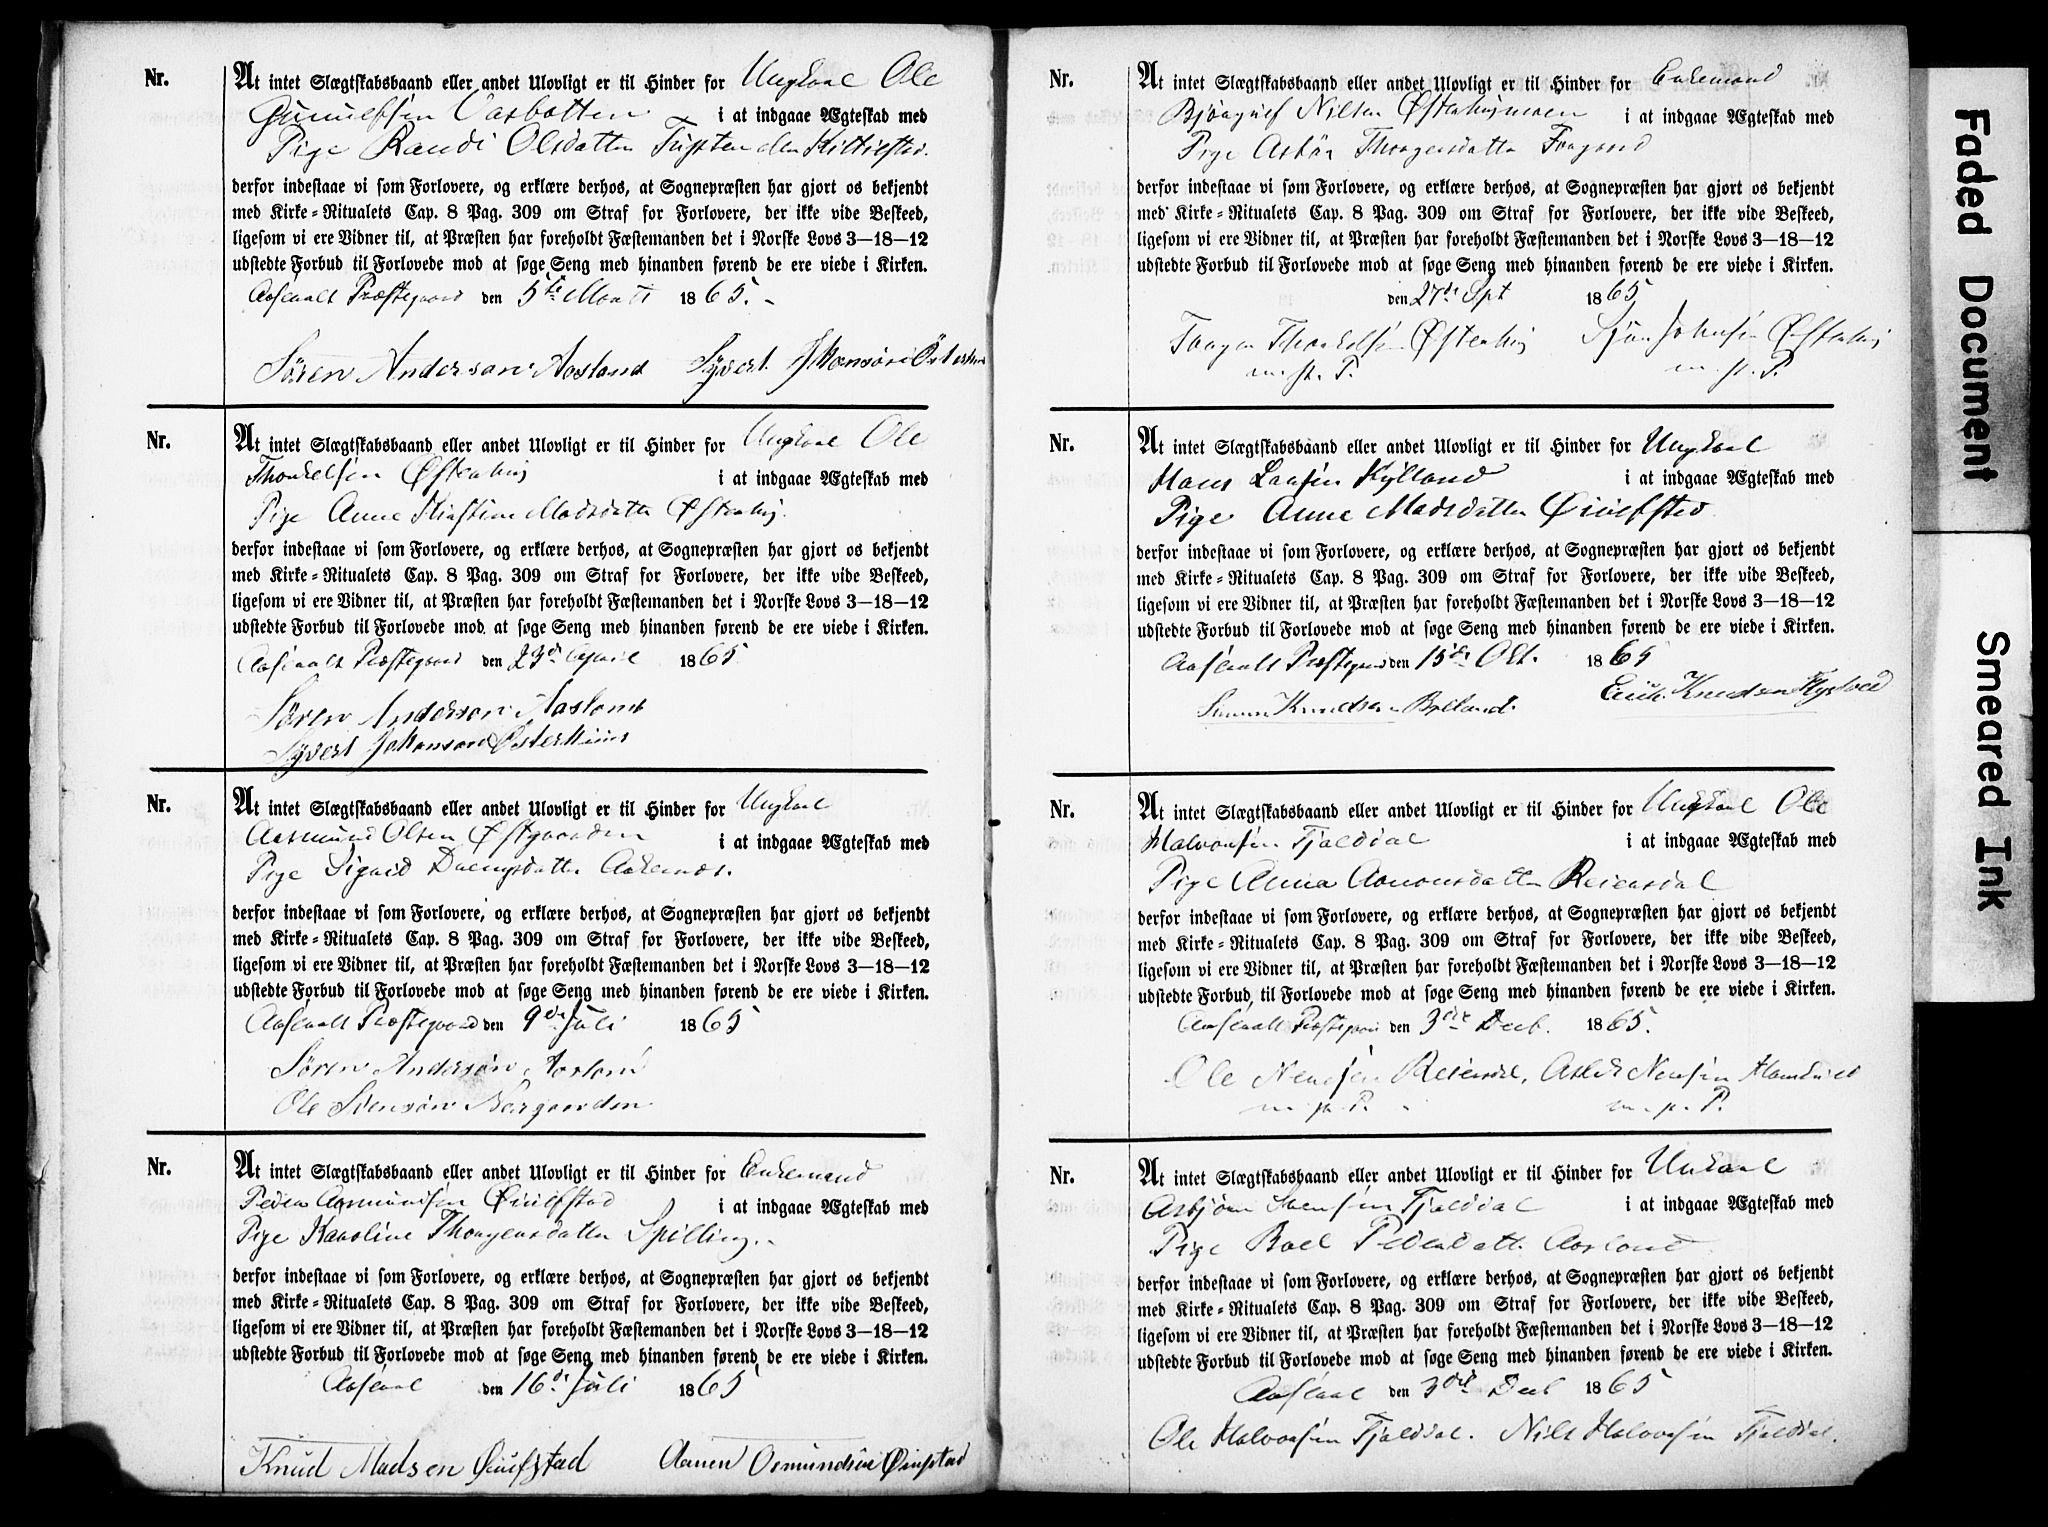 Nr. At intet Slægtskabsbaand eller andet Ulovligt er til Hinder for Ungkarl Ole
Gunulfsen Vasbotten i at indgaae Ægteskab med
Pige Randi Olsdatter
derfor indestaae vi som Forlovere, og erklære derhos, at Sognepræsten har gjort os bekjendt
med Kirke-Ritualets Cap. 8 Pag. 309 om Straf for Forlovere, der ikke vide Beskeed,
ligesom vi ere Vidner til, at Præsten har foreholdt Fæstemanden det i Norske Lovs 3—18—12
udstedte Forbud til Forlovede mod at søge Seng med hinanden førend de ere viede i Kirken.
Aaseralt Præstegaard den 5te Marts 1865.
Sören Anderson Aasland Syvert Johanson
Nr. At intet Slægtskabsbaand eller andet Ulovligt er til Hinder for Ungkarl Ole
Thorkelsen Østerhus i at indgaae Ægteskab med
Pige Anne Kirstine Madsdatter Østerhus
derfor indestaae vi som Forlovere, og erklære derhos, at Sognepræsten har gjort os bekjendt
med Kirke-Ritualets Cap. 8 Pag. 309 om Straf for Forlovere, der ikke vide Beskeed,
ligesom vi ere Vidner til, at Præsten har foreholdt Fæstemanden det i Norske Lovs 3—18—12
udstedte Forbud til Forlovede mod at søge Seng med hinanden førend de ere viede i Kirken.
Aaseralt Præstegaard den 23de April 1865
Sören Anderson Aasland
Syvert Johanson Østerhuus
Nr. At intet Slægtskabsbaand eller andet Ulovligt er til Hinder for Ungkarl
Aasmund Olsen Østgaarden i at indgaae Ægteskab med
Pige Sigrid
derfor indestaae vi som Forlovere, og erklære derhos, at Sognepræsten har gjort os bekjendt
med Kirke-Ritualets Cap. 8 Pag. 309 om Straf for Forlovere, der ikke vide Beskeed,
ligesom vi ere Vidner til, at Præsten har foreholdt Fæstemanden det i Norske Lovs 3—18—12
udstedte Forbud til Forlovede mod at søge Seng med hinanden førend de ere viede i Kirken.
Aaseralt Præstegaard den 9de Juli 1865
Sören Anderson Aasland
Ole Svensön
Nr. At intet Slægtskabsbaand eller andet Ulovligt er til Hinder for Enkemand
Peder Aasmundsen Øiulfstad i at indgaae Ægteskab med
Pige Karoline Thorgersdatter Spilling
derfor indestaae vi som Forlovere, og erklære derhos, at Sognepræsten har gjort os bekjendt
med Kirke-Ritualets Cap. 8 Pag. 309 om Straf for Forlovere, der ikke vide Beskeed,
ligesom vi ere Vidner til, at Præsten har foreholdt Fæstemanden det i Norske Lovs 3—18—12
udstedte Forbud til Forlovede mod at søge Seng med hinanden førend de ere viede i Kirken.
Aaseral den 16de Juli 1865
Knud Madsen Øiufstad Aanen Osmundsen
Nr. At intet Slægtskabsbaand eller andet Ulovligt er til Hinder for Enkemand
Bjørgulf Nilsen i at indgaae Ægteskab med
Pige Asbör Thorgersdatter
derfor indestaae vi som Forlovere, og erklære derhos, at Sognepræsten har gjort os bekjendt
med Kirke-Ritualets Cap. 8 Pag. 309 om Straf for Forlovere, der ikke vide Beskeed,
ligesom vi ere Vidner til, at Præsten har foreholdt Fæstemanden det i Norske Lovs 3—18—12
udstedte Forbud til Forlovede mod at søge Seng med hinanden førend de ere viede i Kirken.
den 27de Spt 1865
Thorkelsen Østerhus Johnsen Østerhus
m. p. P. m. p. P.
Nr. At intet Slægtskabsbaand eller andet Ulovligt er til Hinder for Ungkarl
Hans Larsen Kylland i at indgaae Ægteskab med
Pige Anne Madsdatter Øiulfsted
derfor indestaae vi som Forlovere, og erklære derhos, at Sognepræsten har gjort os bekjendt
med Kirke-Ritualets Cap. 8 Pag. 309 om Straf for Forlovere, der ikke vide Beskeed,
ligesom vi ere Vidner til, at Præsten har foreholdt Fæstemanden det i Norske Lovs 3—18—12
udstedte Forbud til Forlovede mod at søge Seng med hinanden førend de ere viede i Kirken.
Aaseralt Præstegaard den 15de Oct. 1865
Knudsen Knudsen
Nr. At intet Slægtskabsbaand eller andet Ulovligt er til Hinder for Ungkarl Ole
Halvorsen Fjaldal i at indgaae Ægteskab med
Pige Anna Aanonsdatter Reiersdal
derfor indestaae vi som Forlovere, og erklære derhos, at Sognepræsten har gjort os bekjendt
med Kirke-Ritualets Cap. 8 Pag. 309 om Straf for Forlovere, der ikke vide Beskeed,
ligesom vi ere Vidner til, at Præsten har foreholdt Fæstemanden det i Norske Lovs 3—18—12
udstedte Forbud til Forlovede mod at søge Seng med hinanden førend de ere viede i Kirken.
Aaseralt Præstegaard den 3die Decb. 1865.
Ole Reiersdal,
m. p. P. m. p. P.
Nr. At intet Slægtskabsbaand eller andet Ulovligt er til Hinder for Unkarl
Asbjørn Svensen Fjaldal i at indgaae Ægteskab med
Pige Boel Pedersdatt. Aasland
derfor indestaae vi som Forlovere, og erklære derhos, at Sognepræsten har gjort os bekjendt
med Kirke-Ritualets Cap. 8 Pag. 309 om Straf for Forlovere, der ikke vide Beskeed,
ligesom vi ere Vidner til, at Præsten har foreholdt Fæstemanden det i Norske Lovs 3—18—12
udstedte Forbud til Forlovede mod at søge Seng med hinanden førend de ere viede i Kirken.
Aaseral den 3die Decb 1865
Ole Halvorsen Fjaldal. Nils Halvorsen Fjaldal.
Faded Document
Smeared Ink